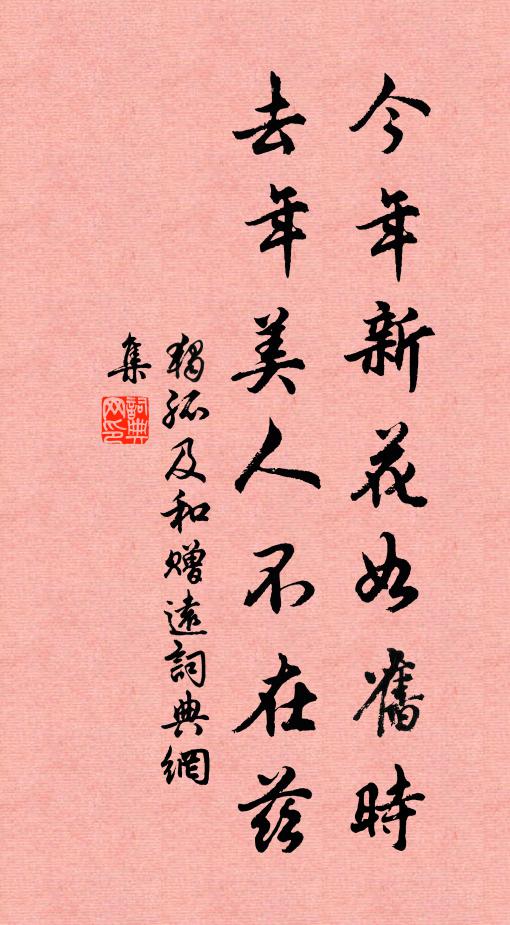 今年新花如舊時
去年美人不在茲
獨孤及和贈遠詞典網
集
詞典網印